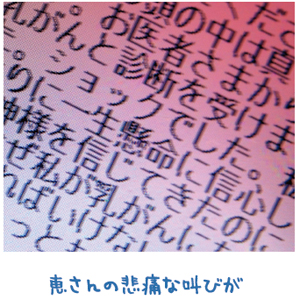 頭の中は真
お医者さまから
乳がんと診断を受けま
ショックでした。私
らに一生懸命に信心し
神様を信じてきたのに
ぜ私が乳がんに
ればいけな
っと
恵さんの悲痛な叫びが